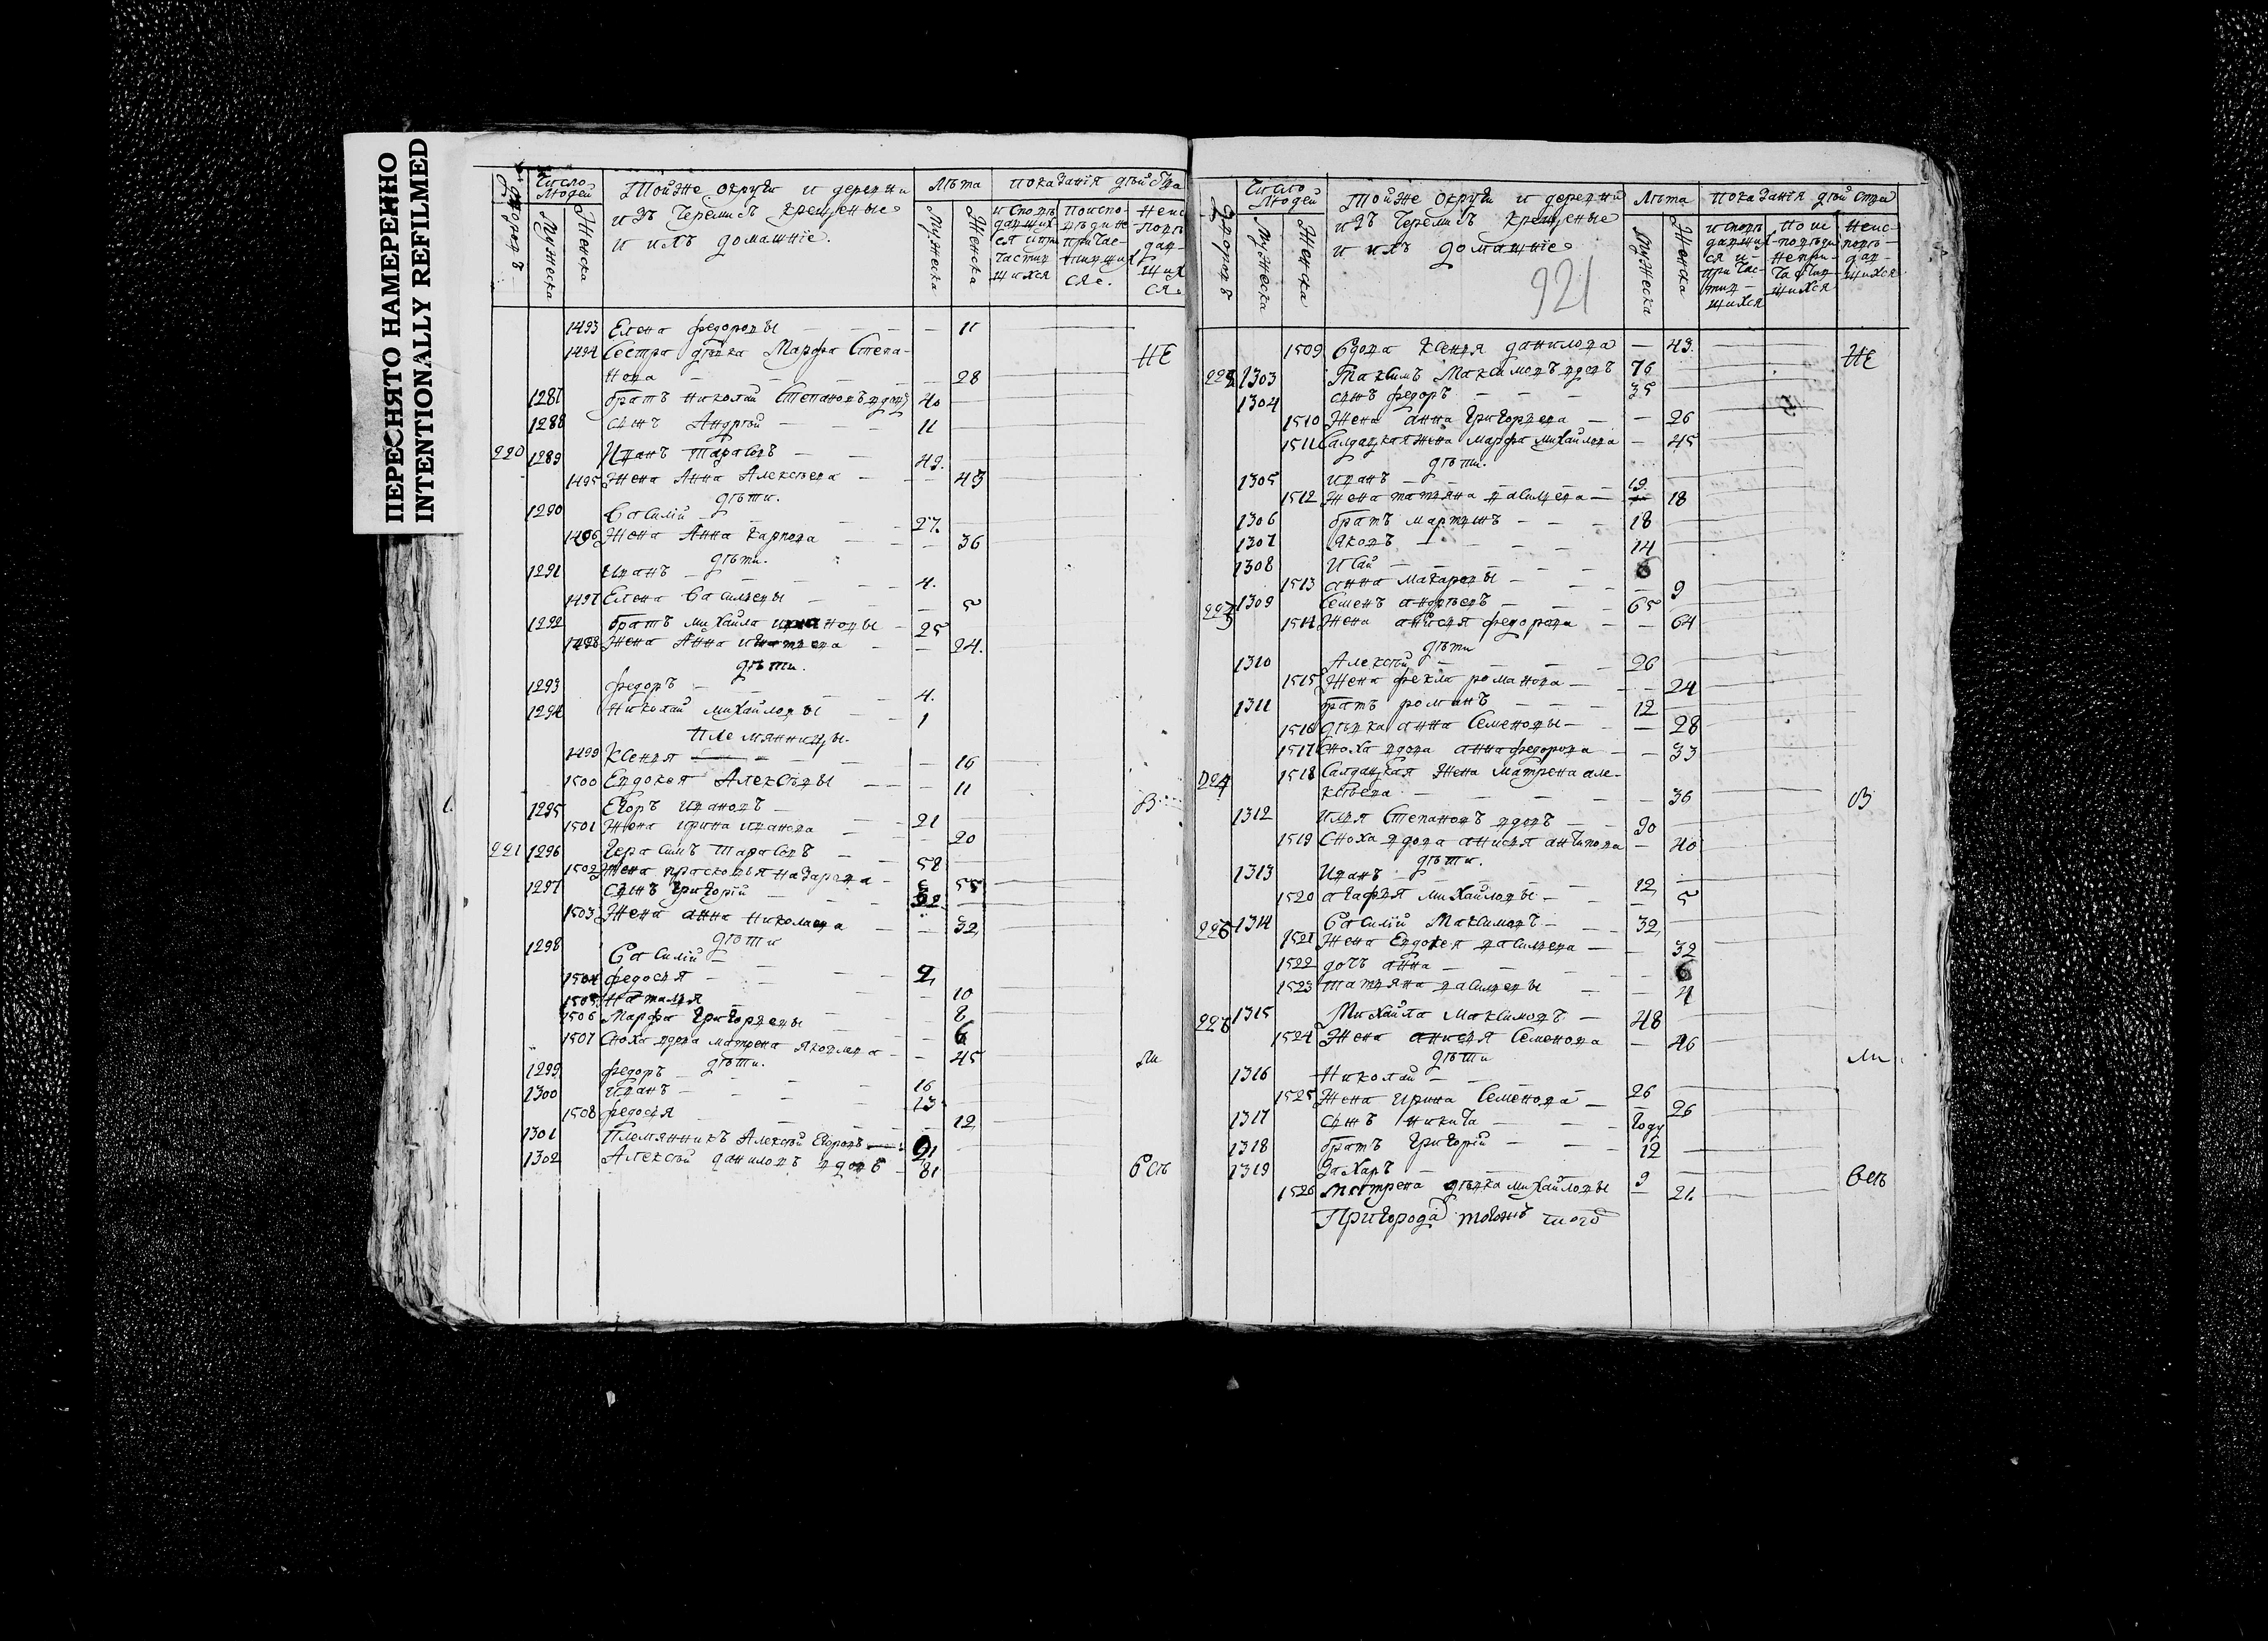 ПЕРЕСНЯТО НАМЕРЕННО
INTENTIONALLY REFILMED
Дворовъ
Число Людей
Мужеска
Женска
Тойже округи и деревни
изъ Черемисъ крещеные
и ихъ домашніе.
Лѣта
Мужеска
Женска
показанія дѣйства
исповѣдавших-ся и причастившихся
поисповѣди не причастившихся.
Неисповѣдавшихся.
1493 Елена федоровы 11
1494 Сестра дѣвка Марфа Степа-
нова 28 НЕ
1287 братъ николай Степановъ вдовъ 40
1288 сынъ Андрѣй 11
220 1289 Иванъ Тарасовъ 49.
1495 Жена Анна Алексѣева 43
дѣти.
1290 Василій 27.
1496 Жена Анна карпова 36
дѣти.
1291 Иванъ 4.
1497 Елена Васильевы 5
1292 братъ михайла ивановы 25
1498 Жена Анна игнатьева 24.
дѣти.
1293 федоръ 4.
1294 Николай михайловы 1
племянницы.
1499 Ксенья 16
1500 Евдокея Алексѣевы 11
1295 Егоръ ивановъ 21 В
1501 Жена ирина иванова 20
221 1296 Герасимъ тарасовъ 58
1502 Жена прасковья назарова 55
1297 Сынъ григорій 32
1503 Жена анна николаева 32
дѣти
1298 Василій 2
1504 федосья 10
1505 Наталья 8
1506 Марфа григорьевы 6
1507 Сноха вдова матрена яковлева 45 ли
дѣти.
1299 федоръ 16
1300 иванъ 13
1508 федосья 12
1301 Племянникъ Алексѣй Егоровъ 21
1302 Алексѣй даниловъ вдовъ 81 Всѣ
Дворовъ
Число Людей
Мужеска
Женска
Тойже округи и деревни
изъ Черемисъ крещеные
и ихъ домашніе
921
Лѣта
Мужеска
Женска
показанія дѣйства
исповѣдавшихся и причастившихся
по исповѣди непричастившихся
Неисповѣдавшихся
1509 Вдова ксенья данилова 43. НЕ
222 1303 Максимъ Максимовъ вдовъ 76
1304 сынъ федоръ 35
1510 Жена анна григорьева 26
1511 Салдацкая жена марфа михайлова 45
дѣти.
1305 иванъ 19
1512 Жена татьяна васильева 18
1306 братъ мартынъ 18
1307 Яковъ 14
1308 Исай 6
1513 анна макаровы 9
223 1309 Семенъ андрѣевъ 65
1514 Жена анисья федорова 64
дѣти
1310 Алексѣй 26
1515 Жена фекла романова 24
1311 братъ романъ 12
1516 дѣвка анна Семеновы 28
1517 Сноха вдова анна федорова 33
224 1518 Салдацкая Жена матрена але-
ксѣева 36 В
1312 илья Степановъ вдовъ 90
1519 Сноха вдова анисья антипова 40
дѣти.
1313 Иванъ 12
1520 агафья михайловы 5
226 1314 Василій Максимовъ 32
1521 Жена Евдокея васильева 32
1522 дочь анна 6
1523 татьяна васильевы 4
228 1315 Михайла максимовъ 48
1524 Жена анисья Семенова 46 ли
дѣти
1316 Николай 26
1525 Жена ирина Семенова 26
1317 сынъ никита году
1318 братъ григорій 12
1319 Захаръ 9
1526 матрена дѣвка михайловы 21 Всѣ
Пригорода